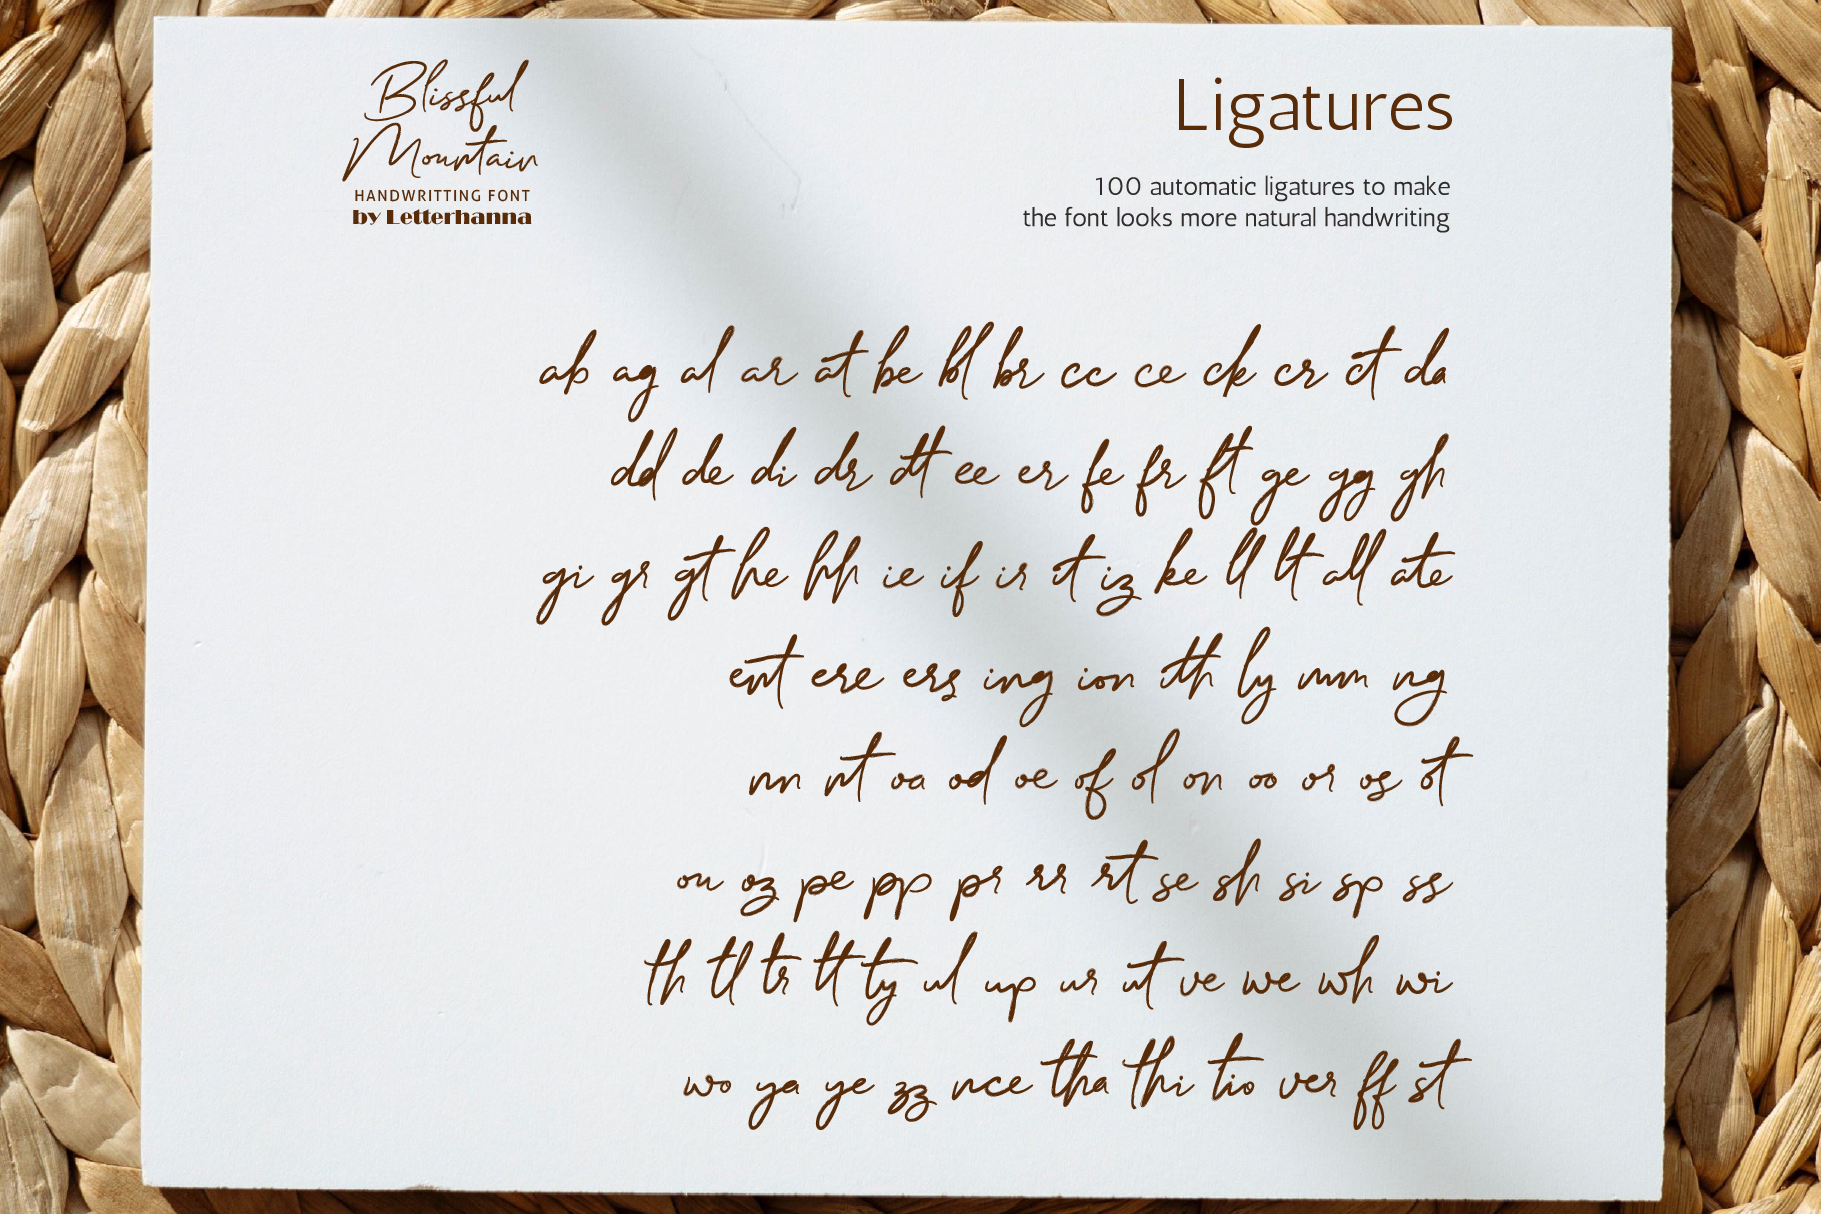 Blissful
Mountain
HANDWRITTING FONT
by Letterhanna
Ligatures
100 automatic ligatures to make
the font looks more natural handwriting
ab ag al ar at be bl br cc ce ck cr ct da
dd de di dr dt ee er fe fr ft ge gg gh
gi gr gt he hh ie if ir it iz ke ll lt all ate
ent ere ers ing ion ith ly mm ng
nn nt oa od oe of ol on oo or os ot
ou oz pe pp pr rr rt se sh si sp ss
th tl tr tt ty ul up ur ut ve we wh wi
wo ya ye zz nce tha thi tio ver ff st